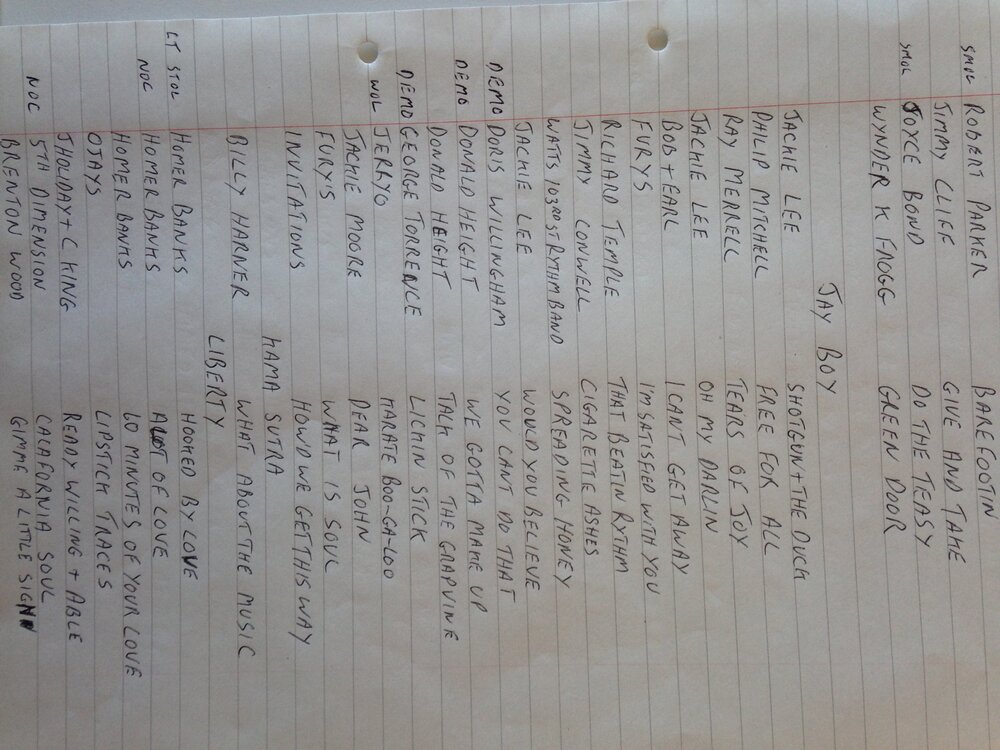 SMOL ROBERT PARKER BAREFOOTIN
JIMMY CLIFF GIVE AND TAKE
SMOL JOYCE BOND DO THE TEASY
WYNDER K FROGG GREEN DOOR
JAY BOY
JACKIE LEE SHOTGUN + THE DUCK
PHILIP MITCHELL FREE FOR ALL
RAY MERRELL TEARS OF JOY
JACKIE LEE OH MY DARLIN
BOB + EARL I CANT GET AWAY
FURYS IM SATISFED WITH YOU
RICHARD TEMPLE THAT BEATIN RYTHM
JIMMY CONWELL CIGARETTE ASHES
WATTS 103RD ST RYTHM BAND SPREADING HONEY
JACKIE LEE WOULD YOU BELIEVE
DEMO DORIS WILLINGHAM YOU CANT DO THAT
DEMO DONALD HEIGHT WE GOTTA MAKE UP
DONALD HEIGHT TALK OF THE GRAPVINE
DEMO GEORGE TORRENCE LICKIN STICK
WOL JERRYO KARATE BOO-GA-LOO
JACKIE MOORE DEAR JOHN
FURY'S WHAT IS SOUL
INVITATIONS HOW'D WE GET THIS WAY
KAMA SUTRA
BILLY HARNER WHAT ABOUT THE MUSIC
LIBERTY
LT STOL HOMER BANKS HOOKED BY LOVE
NOC HOMER BANKS A LOT OF LOVE
HOMER BANKS 60 MINUTES OF YOUR LOVE
OJAYS LIPSTICK TRACES
J HOLIDAY + C KING READY WILLING + ABLE
NOC 5TH DIMENSION CALAFORNIA SOUL
BRENTON WOOD GIMME A LITTLE SIGN